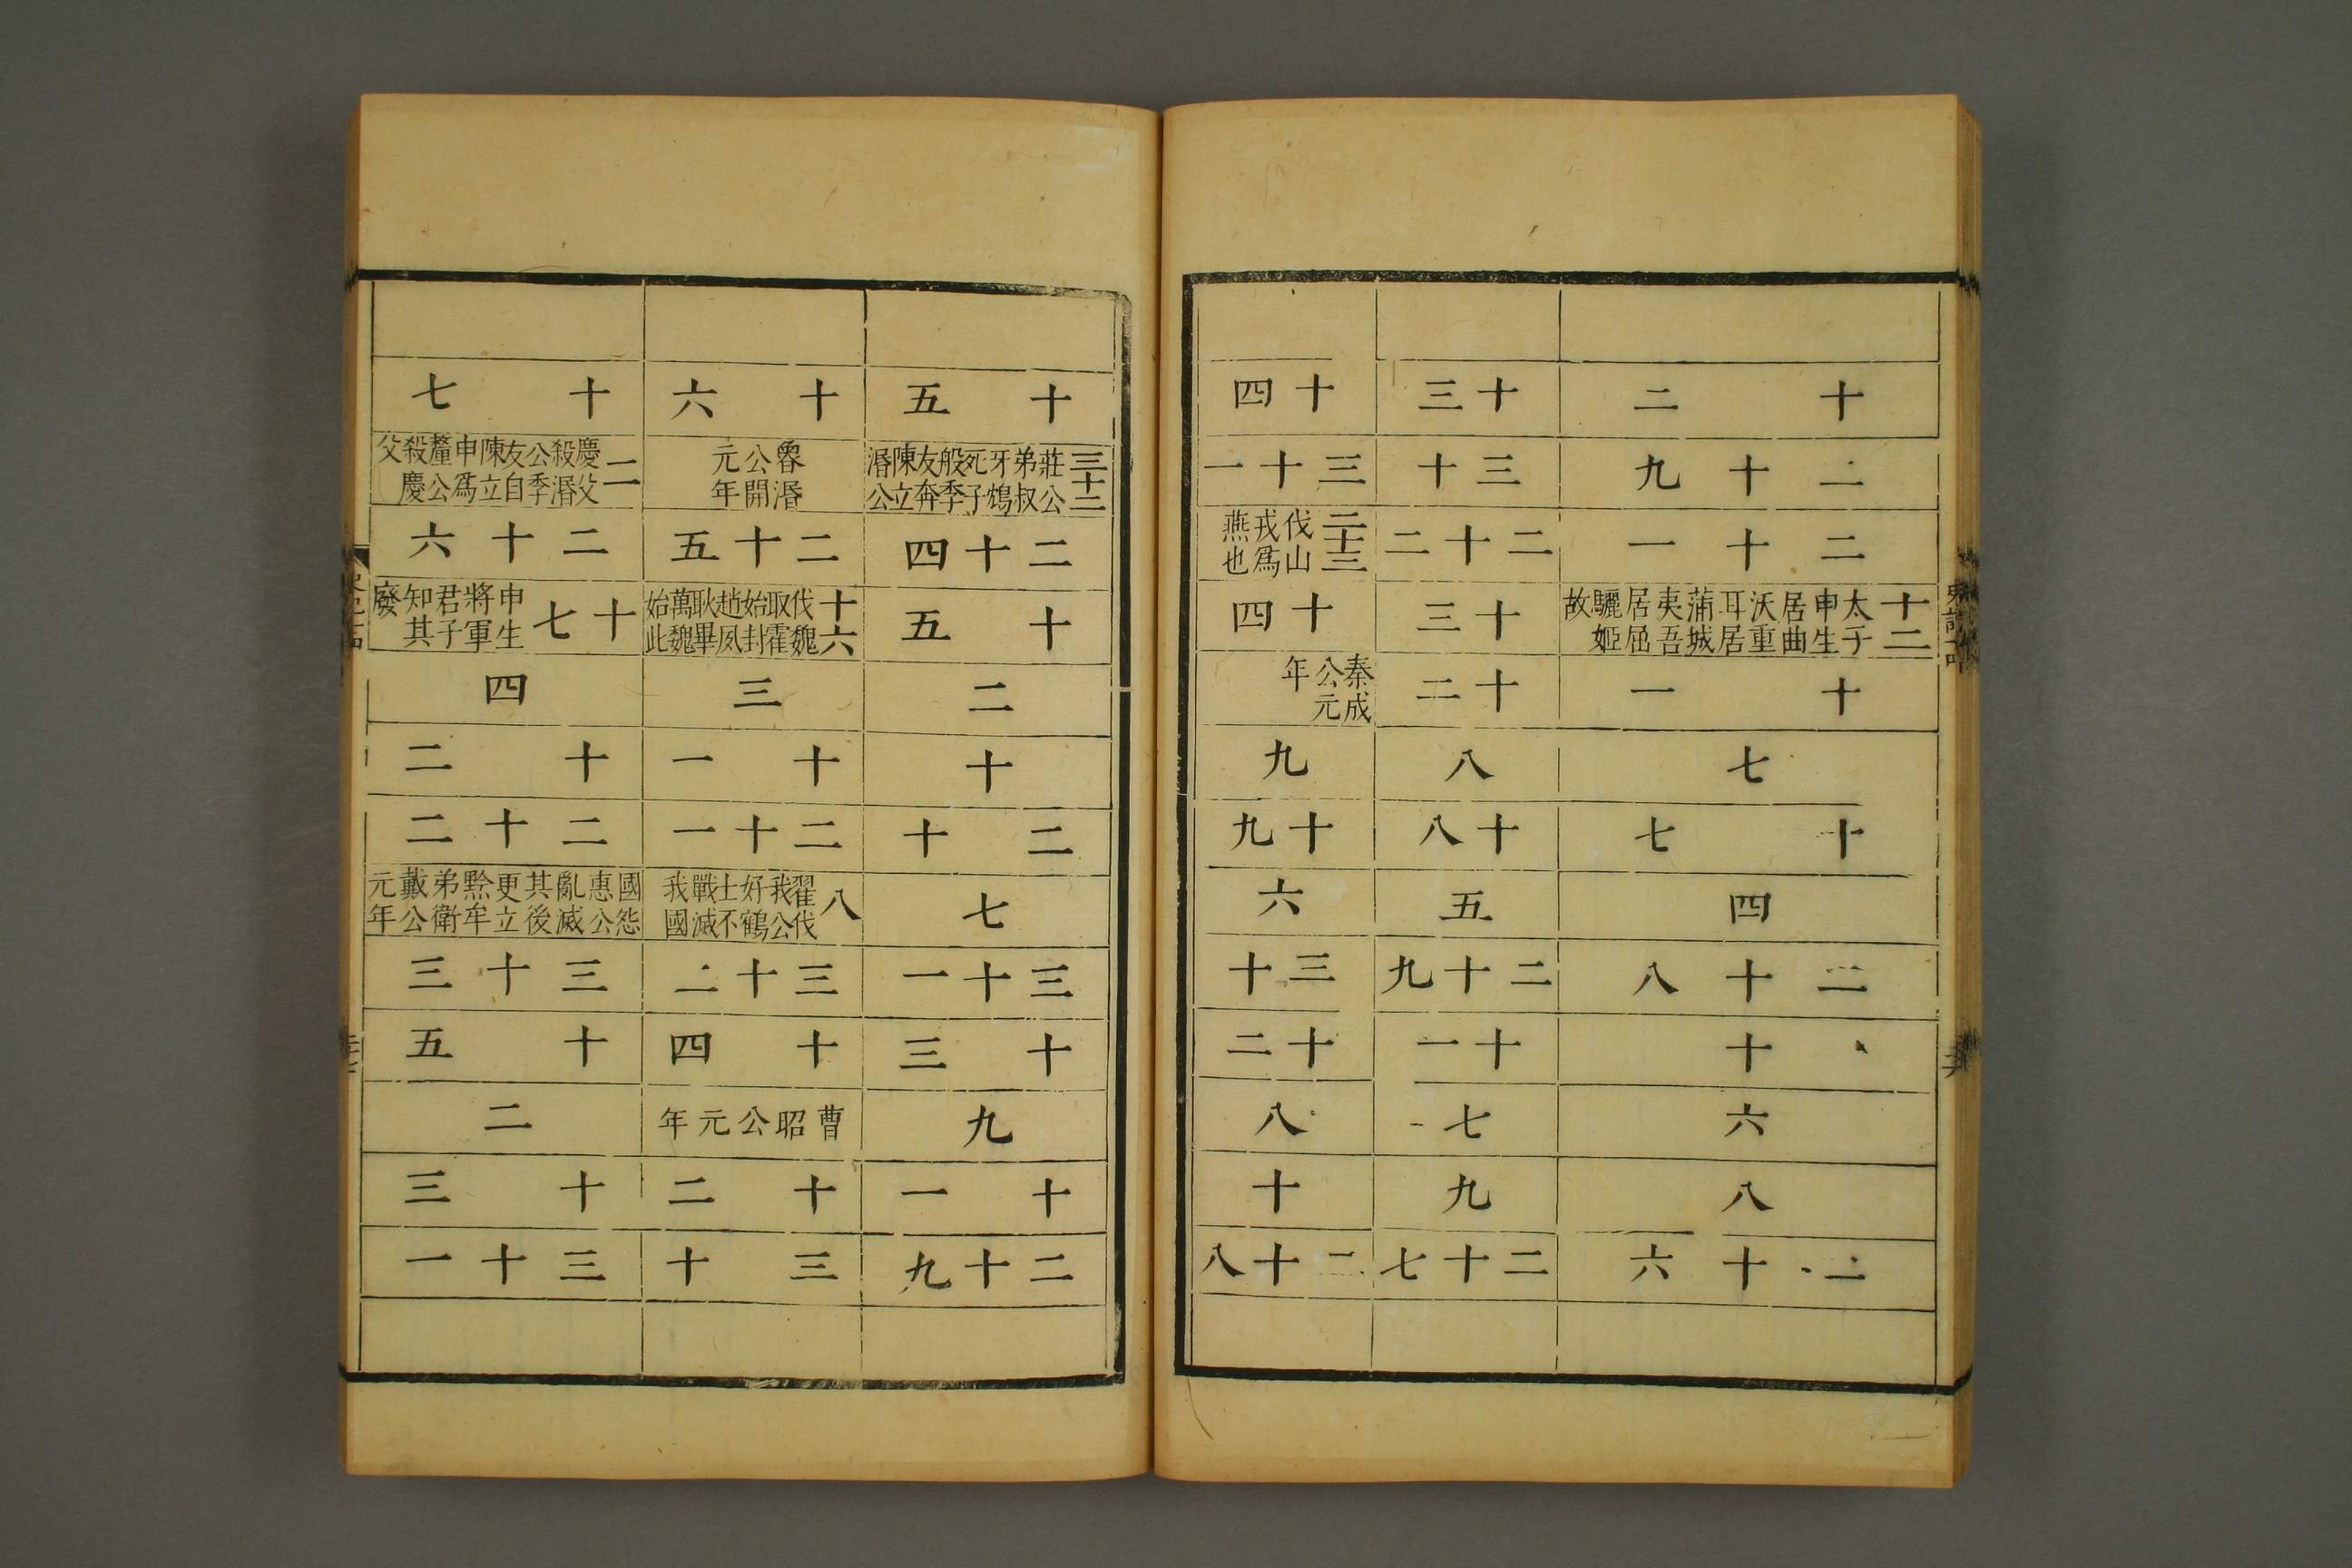 十二
二十九
二十一
十二 太子申生居曲沃重耳居蒲城夷吾居屈驪姬故
十一
七
十七
四
二十八
十
六
八
二十六
十三
三十
二十二
十三
十二
八
十八
五
二十九
十一
七
九
二十七
十四
三十一
二十三 伐山戎爲燕也
十四
秦成公元年
九
十九
六
三十
十二
八
十
二十八
十五
三十二 莊公弟叔牙鴆死子般季友奔陳立湣公
二十四
十五
二
十
二十
七
三十一
十三
九
十一
二十九
十六
魯湣公開元年
二十五
十六 伐魏取霍始封趙夙耿畢萬魏始此
三
十一
二十一
八 翟伐我公好鶴士不戰滅我國
三十二
十四
曹昭公元年
十二
三十
十七
二 慶父殺湣公季友自陳立申爲釐公殺慶父
二十六
十七 申生將軍君子知其廢
四
十二
二十二
國怨惠公亂滅其後更立黔牟弟衛戴公元年
三十三
十五
二
十三
三十一